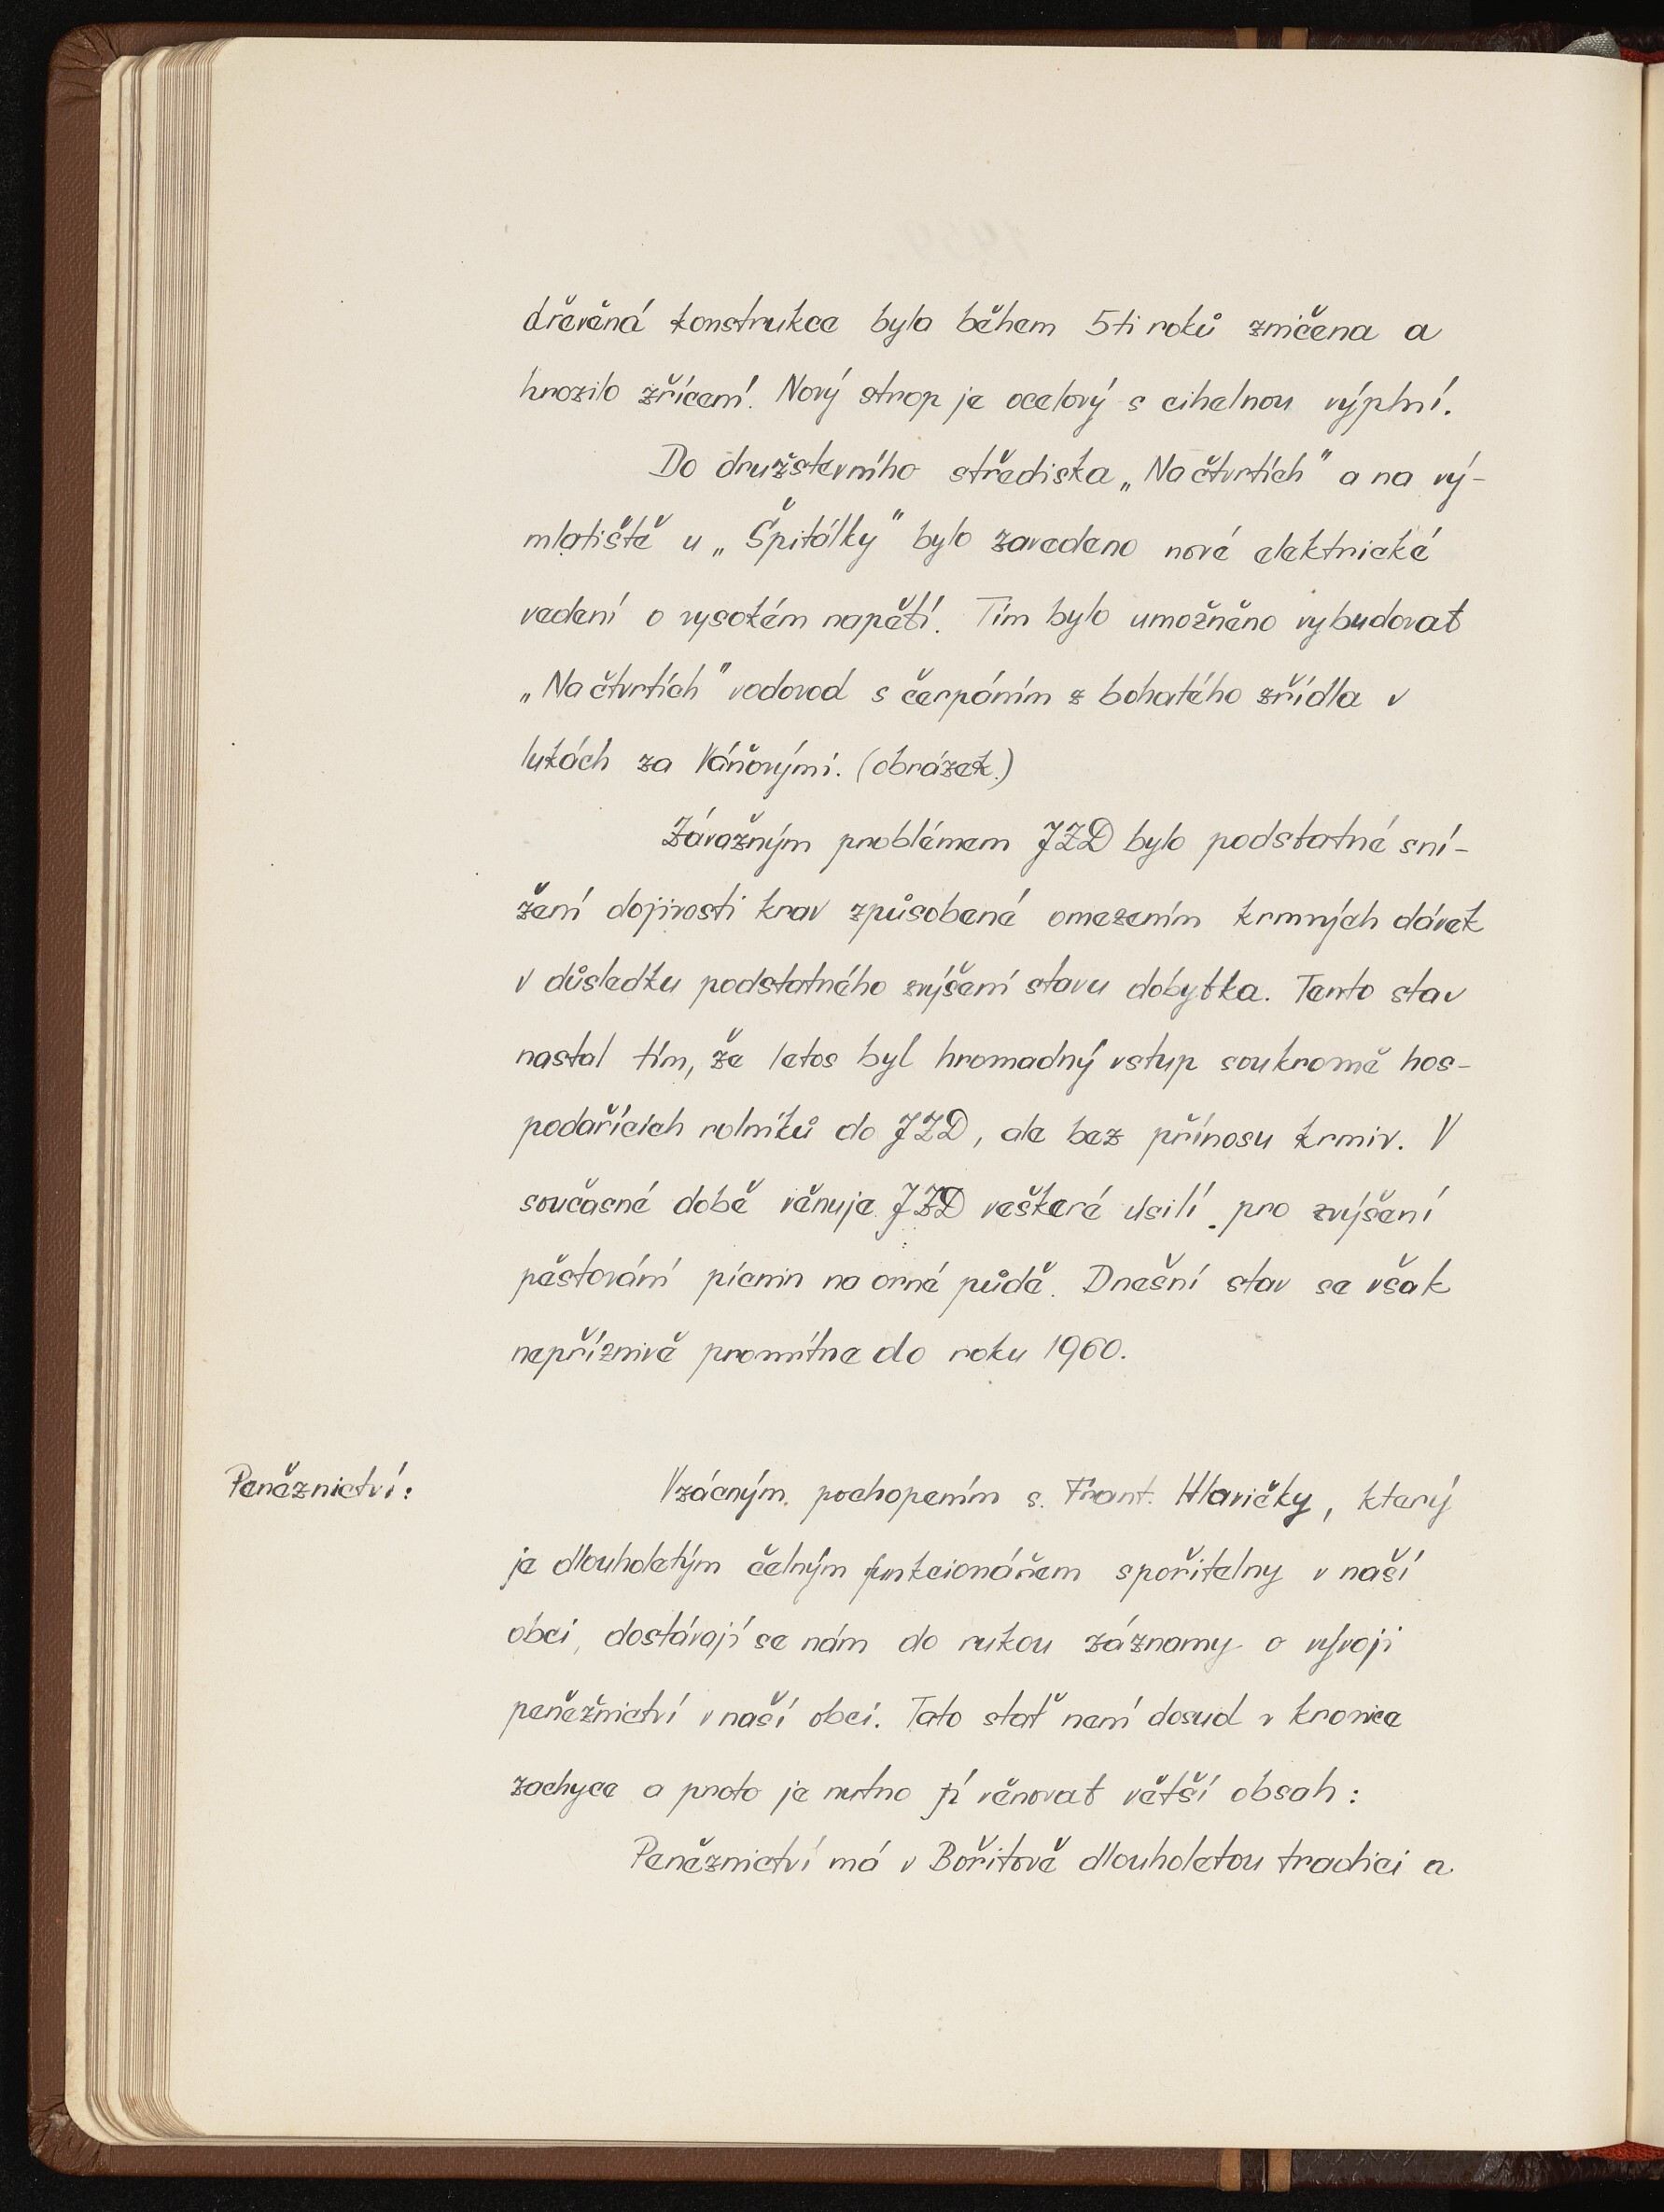 dřevěná konstrukce byla během 5ti roků zničena a
hrozilo zřícení. Nový strop je ocelový s cihelnou výplní.
Do družstevního střediska „Na čtvrtích" a na vý-
mlatiště u „Špitálky" bylo zavedeno nové elektrické
vedení o vysokém napětí. Tím bylo umožněno vybudovat
„Na čtvrtích" vodovod s čerpáním z bohatého zřídla v
lukách za Váňovými. (obrázek.)
Závažným problémem JZD bylo podstatné sní-
žení dojivosti krav způsobené omezením krmných dávek
v důsledku podstatného zvýšení stavu dobytka. Tento stav
nastal tím, že letos byl hromadný vstup soukromě hos-
podařících rolníků do JZD, ale bez přínosu krmiv. V
současné době věnuje JZD veškeré úsilí pro zvýšení
pěstování pícnin na orné půdě. Dnešní stav se však
nepříznivě promítne do roku 1960.
Peněznictví:
Vzácným pochopením s. Frant. Hlavičky, který
je dlouholetým čelným funkcionářem spořitelny v naší
obci, dostávají se nám do rukou záznamy o vývoji
peněžnictví v naší obci. Tato stať není dosud v kronice
zachyce a proto je nutno jí věnovat větší obsah:
Peněznictví má v Bořitově dlouholetou tradici a